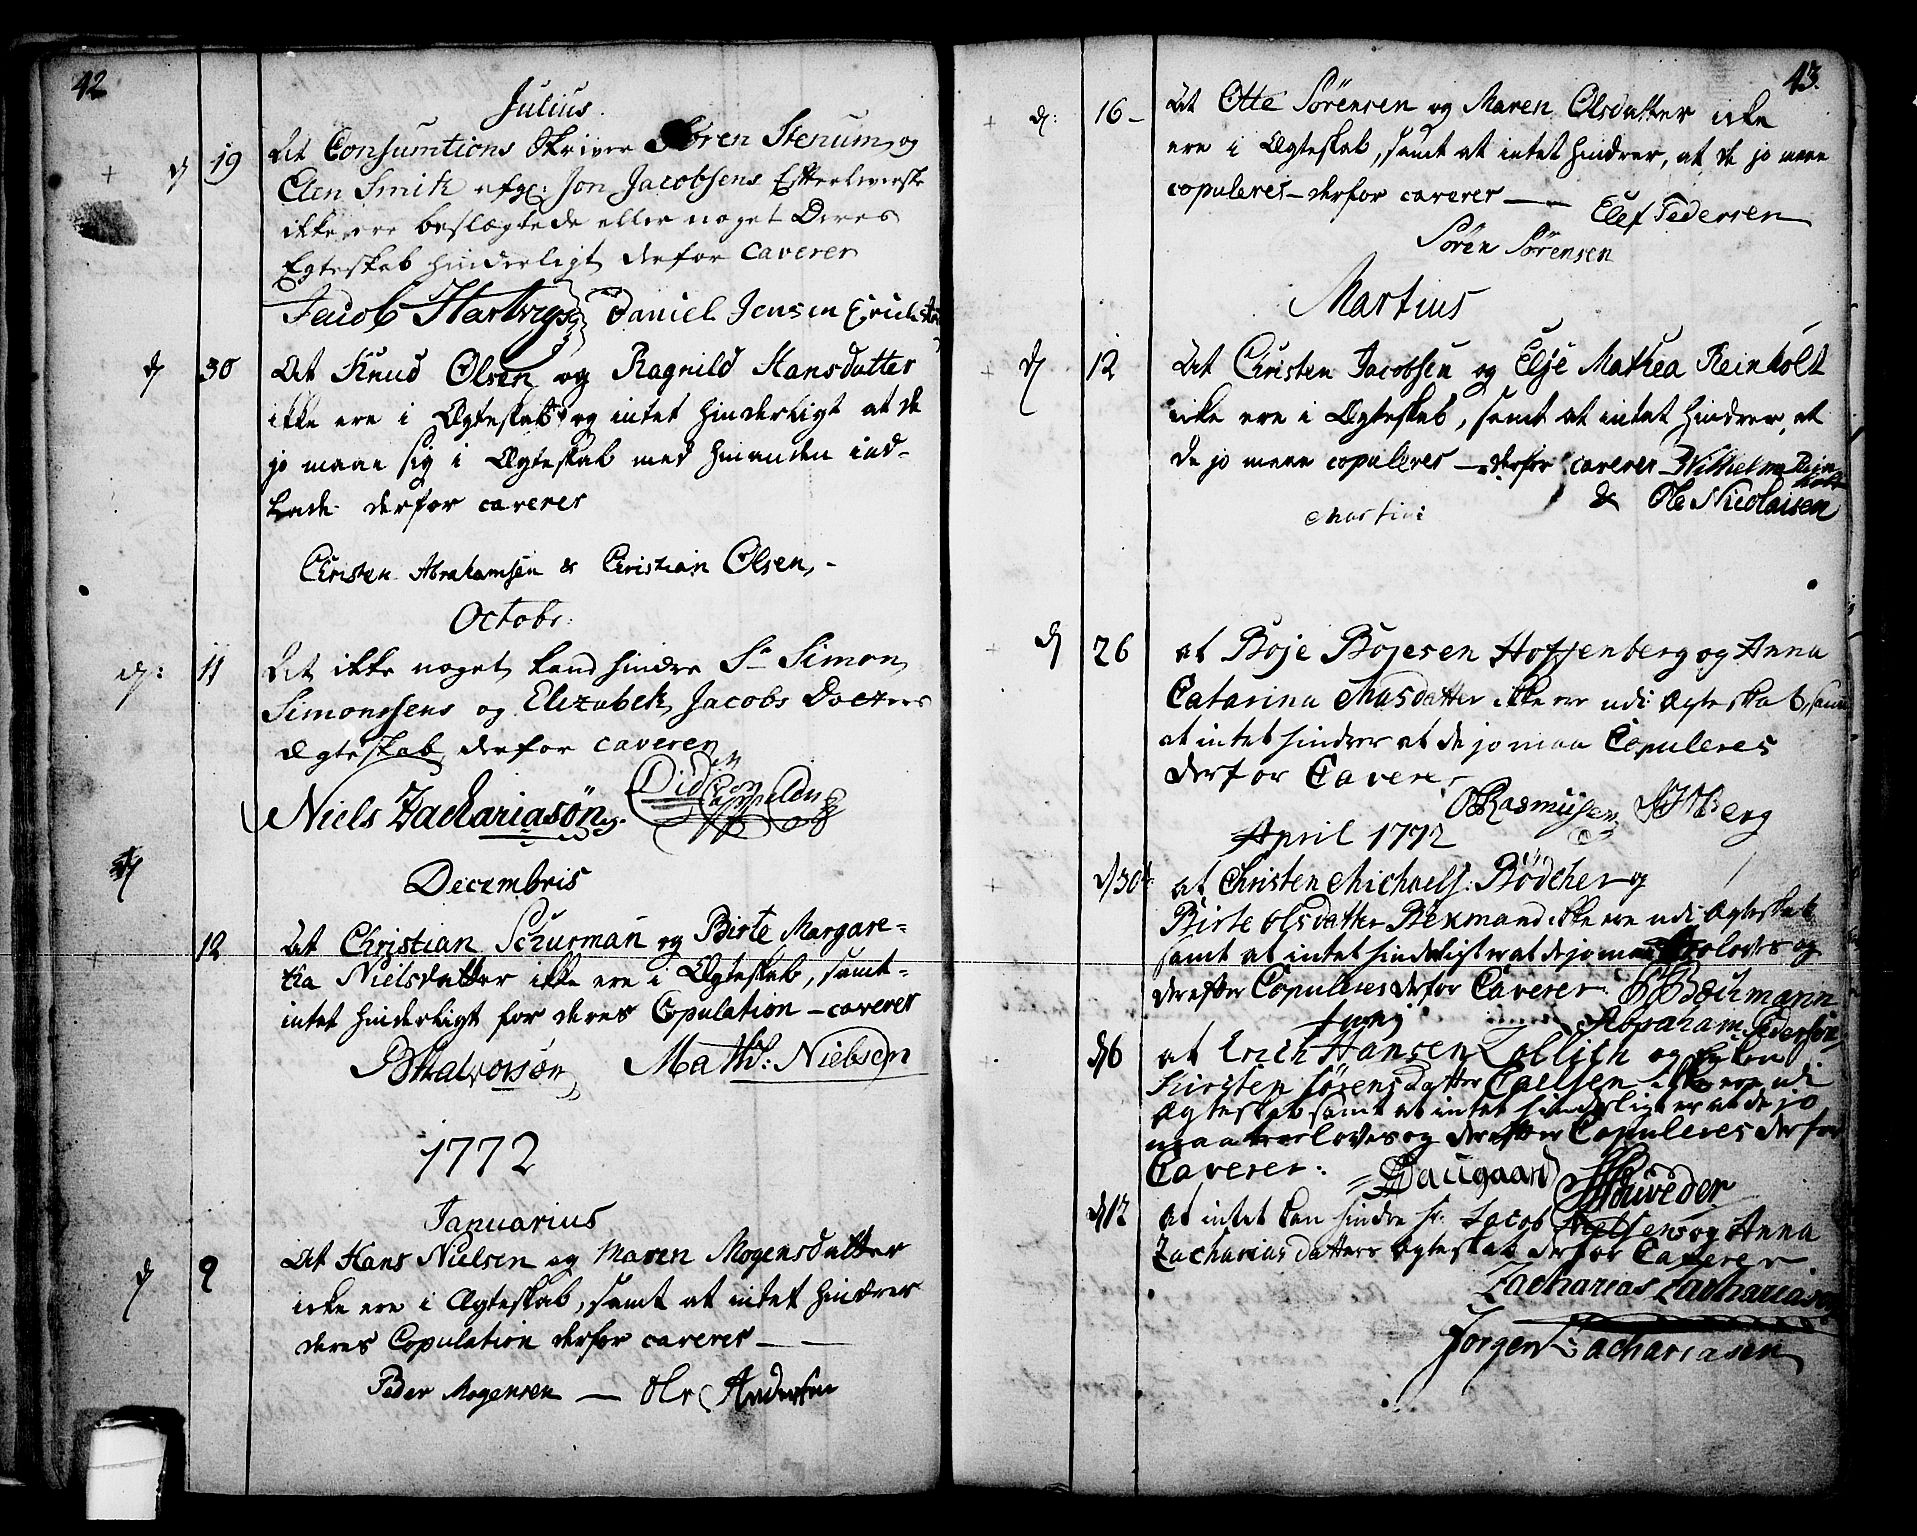 42
Julius.
d 19 At Consumtions Skriver Søren Stenum og
Elen Smith afg: Jon Jacobsens Efterleverske
ikke ere beslægtede eller noget Deres
Egteskab hinderligt, derfor caverer
Jacob Hartvigs Daniel Jensen
d 30 At Knud Olsen og Ragnild Hansdatter
ikke ere i Ægteskab og intet hinderligt at de
jo maae sig i Ægteskab med hinanden ind-
lade derfor caverer
Christen Abrahamsen & Christian Olsen,-
Octobr:
d: 11 At ikke noget kand hindre Sr Simon
Simonssens og Elizabeth Jacobs Docters
Ægteskab derfor caverer
Niels Zachariasøn
Decembris
12 At Christian Schurman og Birte Margare-
tha Nielsdatter ikke ere i Ægteskab, samt
intet hinderligt for deres Copulation - caverer
Halvorsøn Math: Nielsen
1772
Januarius
d 9 At Hans Nielsen og Maren Mogensdatter
ikke ere i Ægteskab, samt at intet hindrer
deres Copulation derfor caverer
Peder Mogensen — Ole Andersen
43.
d: 16- At Otte Sørensen og Maren Olsdatter ikke
ere i Ægteskab, samt at intet hindrer, at de jo maae
copuleres - derfor caverer — Elef Pedersen
Søren Sørensen
Martius
d 12 At Christen Jacobsen og Elje Mathea Reinholt
ikke ere i Ægteskab, samt at intet hindrer, at
de jo maae copuleres - derfor caverer Wilhelm Rein
holt
& Ole Nicolaisen
Martius
d 26 at Boje Bojesen Hoffenberg og Anna
Catarina Masdatter ikke ere udi Ægteskab, samt
at intet hindrer at de jo maa Copuleres
derfor Caverer
Rasmusen Berg
April 1772
d 30t at Christen Michaels: Bödcher og
Birte Olsdatter Bexmand ikke ere udi Ægteskab
samt at intet hinderligt er at de jo maa troloves og
derefter Copuleres derfor Caverer: Bochmann
Abraham Pedersøn
Junij
d 6 at Erich Hansen Zollich og
Kirsten Sørens datter Caelsen ikke ere udi
Ægteskab samt at intet hinderligt er at de jo
maa troloves og derefter Copuleres derfor
Caverer: Daugaard Schrøder
d 12 at intet kan hindre Sr. Jacob Nielsens og Anna
Zacharias datters Ægteskab derfor Caverer
Zacharias Zachariasen
Jørgen Zachariasen